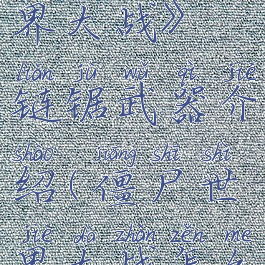 界大战》
liàn jù wǔ qì jiè
链锯武器介
shào jiāng shī shì
绍(僵尸世
jiè dà zhàn zěn me
界大战怎么